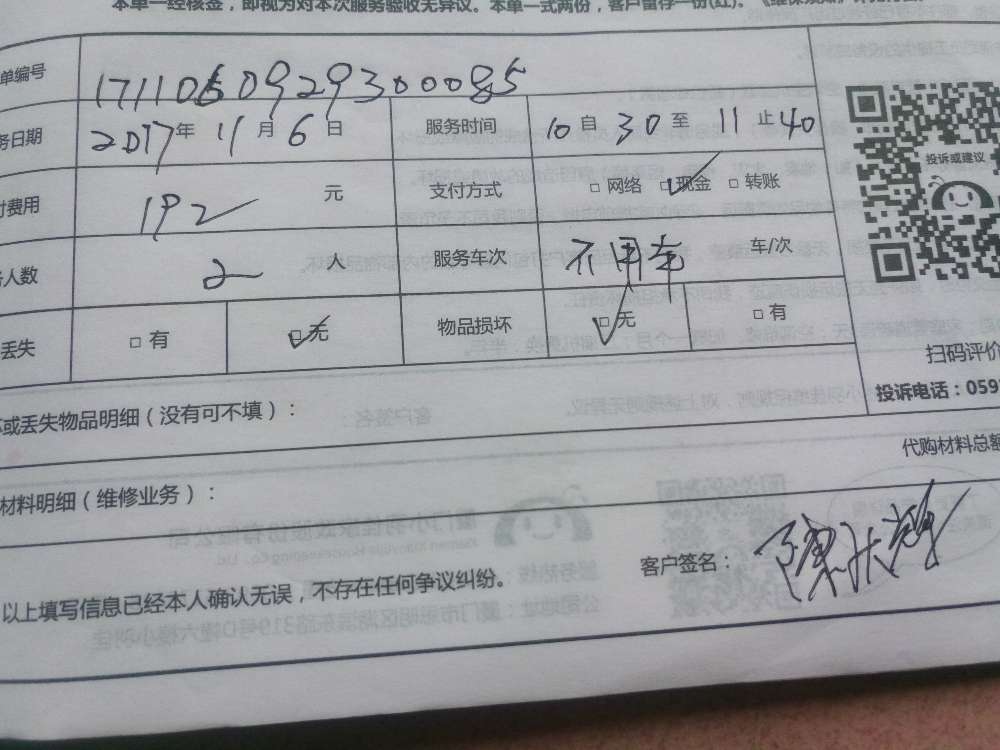 本单一经核金，即视为对本次服务验收无异议。本单一式两份，客户留存一份(红)。
单编号 1711060929300085
务日期 2017年 11月 6日 服务时间 10自30至11止40
付费用 192 元 支付方式 □网络 □现金 □转账
人数 2 服务车次 不用车 车/次
丢失 □有 □无 物品损坏 □无 □有
投诉或建议
扫码评价
投诉电话：059
或丢失物品明细（没有可不填）：
代购材料总额
材料明细（维修业务）：
以上填写信息已经本人确认无误，不存在任何争议纠纷。
客户签名：